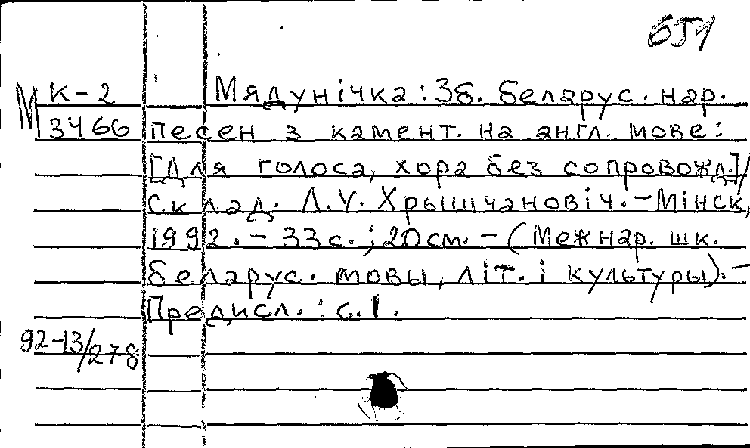 6Л1
К-2 Мядунічка: Зб. беларус. нар.
М 3466 песен з камент. на англ. мове:
[Для голоса, хора без сопровожд.]/
склад. Л.У. Хрышчановіч. - Мінск,
1992. - 33 с.; 20 см. - (Межнар. шк.
беларус. мовы, літ. і культуры). -
Предисл.: с.1.
92-13/278